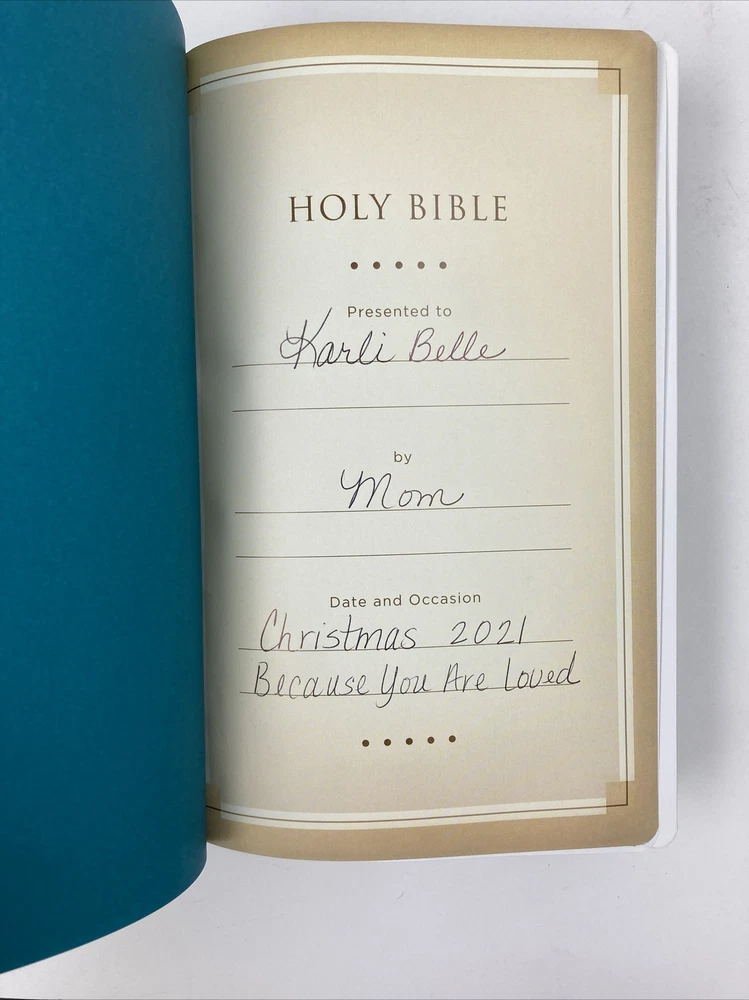 HOLY BIBLE
Presented to
Karli Belle
by
Mom
Date and Occasion
Christmas 2021
Because You Are Loved